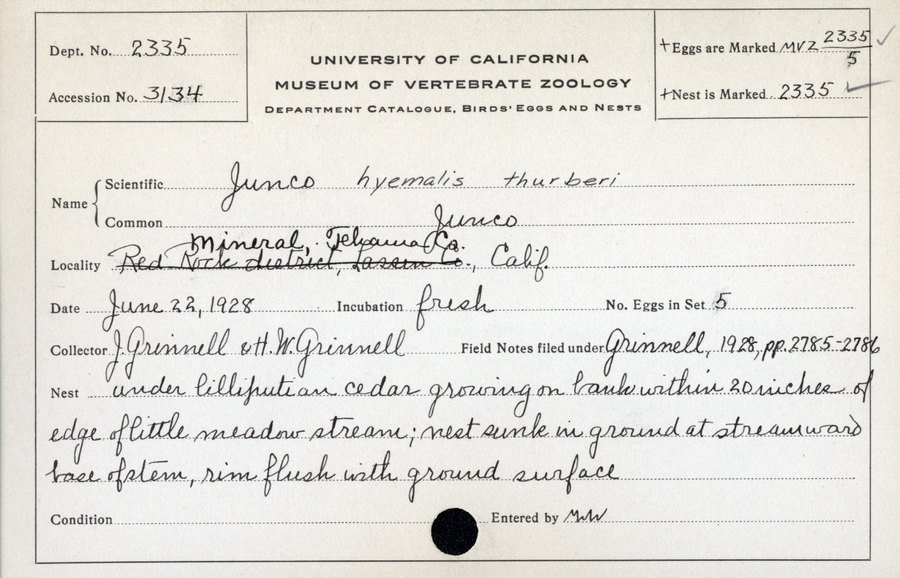 Dept. No. 2335
Accession No. 3134
UNIVERSITY OF CALIFORNIA
MUSEUM OF VERTEBRATE ZOOLOGY
DEPARTMENT CATALOGUE, BIRDS' EGGS AND NESTS
+Eggs are Marked MVZ 2335/5 ✓
+Nest is Marked 2335 ✓
Name { Scientific Junco hyemalis thurberi
Common Junco
Mineral, Tehama Co.
Locality Red Rock district, Lassen Co., Calif.
Date June 22, 1928 Incubation fresh No. Eggs in Set 5
Collector J. Grinnell & H. W. Grinnell Field Notes filed under Grinnell, 1928, pp. 2785-2786
Nest under lilliputian cedar growing on bank within 20 inches of
edge of little meadow stream; nest sunk in ground at streamward
base of stem, rim flush with ground surface
Condition Entered by MW